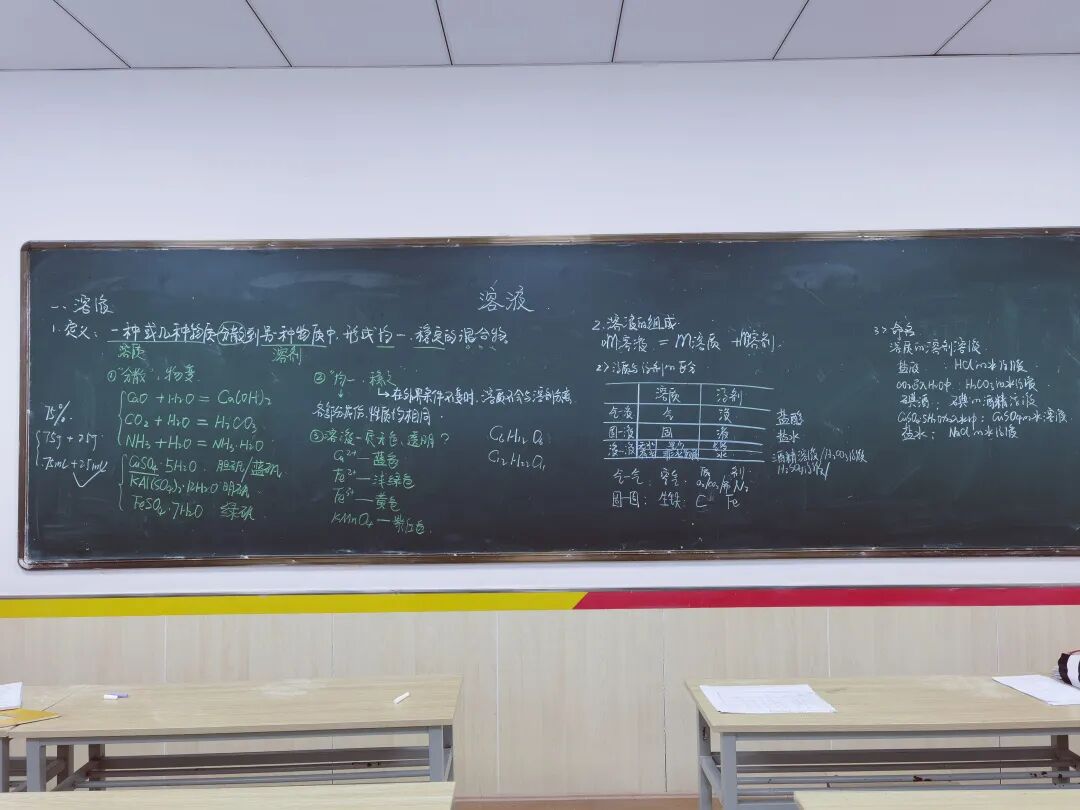 溶液
一、溶液
1.定义：一种或几种物质分散到另一种物质中，形成均一、稳定的混合物
溶质 溶剂
①"分散"：物变
CaO + H₂O = Ca(OH)₂
CO₂ + H₂O = H₂CO₃
NH₃ + H₂O = NH₃·H₂O
75%
75g + 25g
75mL + 25mL
CuSO₄·5H₂O 胆矾/蓝矾
KAl(SO₄)₂·12H₂O 明矾
FeSO₄·7H₂O 绿矾
②"均一、稳定"
→在外界条件不变时，溶质不会与溶剂分离
各部分其他性质均相同
③溶液一定无色、透明？
Cu²⁺—蓝色
Fe²⁺—浅绿色
Fe³⁺—黄色
KMnO₄—紫红色
C₆H₁₂O₆
C₁₂H₂₂O₁₁
2.溶液的组成
m溶液 = m溶质 + m溶剂
2>溶质与溶剂的区分
溶质 溶剂
气-液 气 液 盐酸
固-液 固 液 盐水
液-液
气-气：空气 质 剂 N₂
固-固：生铁 C Fe
3>命名
溶质的溶剂溶液
盐酸：HCl的水溶液
CO₂溶于H₂O中：H₂CO₃的水溶液
碘酒：碘的酒精溶液
CuSO₄·5H₂O溶于水中：CuSO₄的水溶液
盐水：NaCl的水溶液